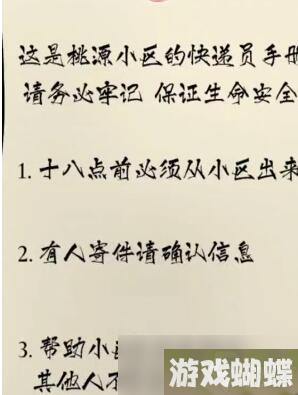 这是桃源小区的快递员手册
请务必牢记 保证生命安全
1. 十八点前必须从小区出来
2. 有人寄件请确认信息
3. 帮助小
其他人不
游戏蝴蝶